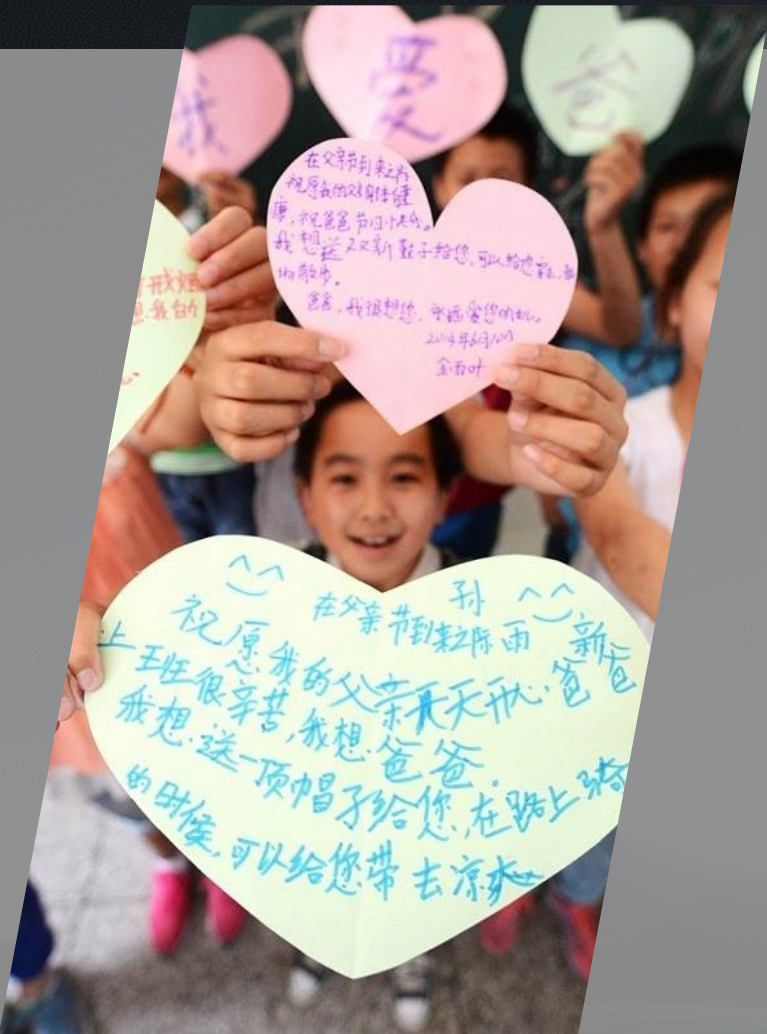 我
愛
爸
在父亲节到来之际
祝愿我的父亲身体健
康,祝爸爸节日快乐。
我想送双新鞋子给您,可以给您
散步。
爸爸,我很想您,永远爱您
2014年6月10日
开戒烟
想.我自的
在父亲节到来之际
孙
雨
新
祝愿我的父亲天天开心.爸爸
上班很辛苦,我想爸爸.
我想.送一顶帽子给您,在路上骑
的时候,可以给您带去凉爽